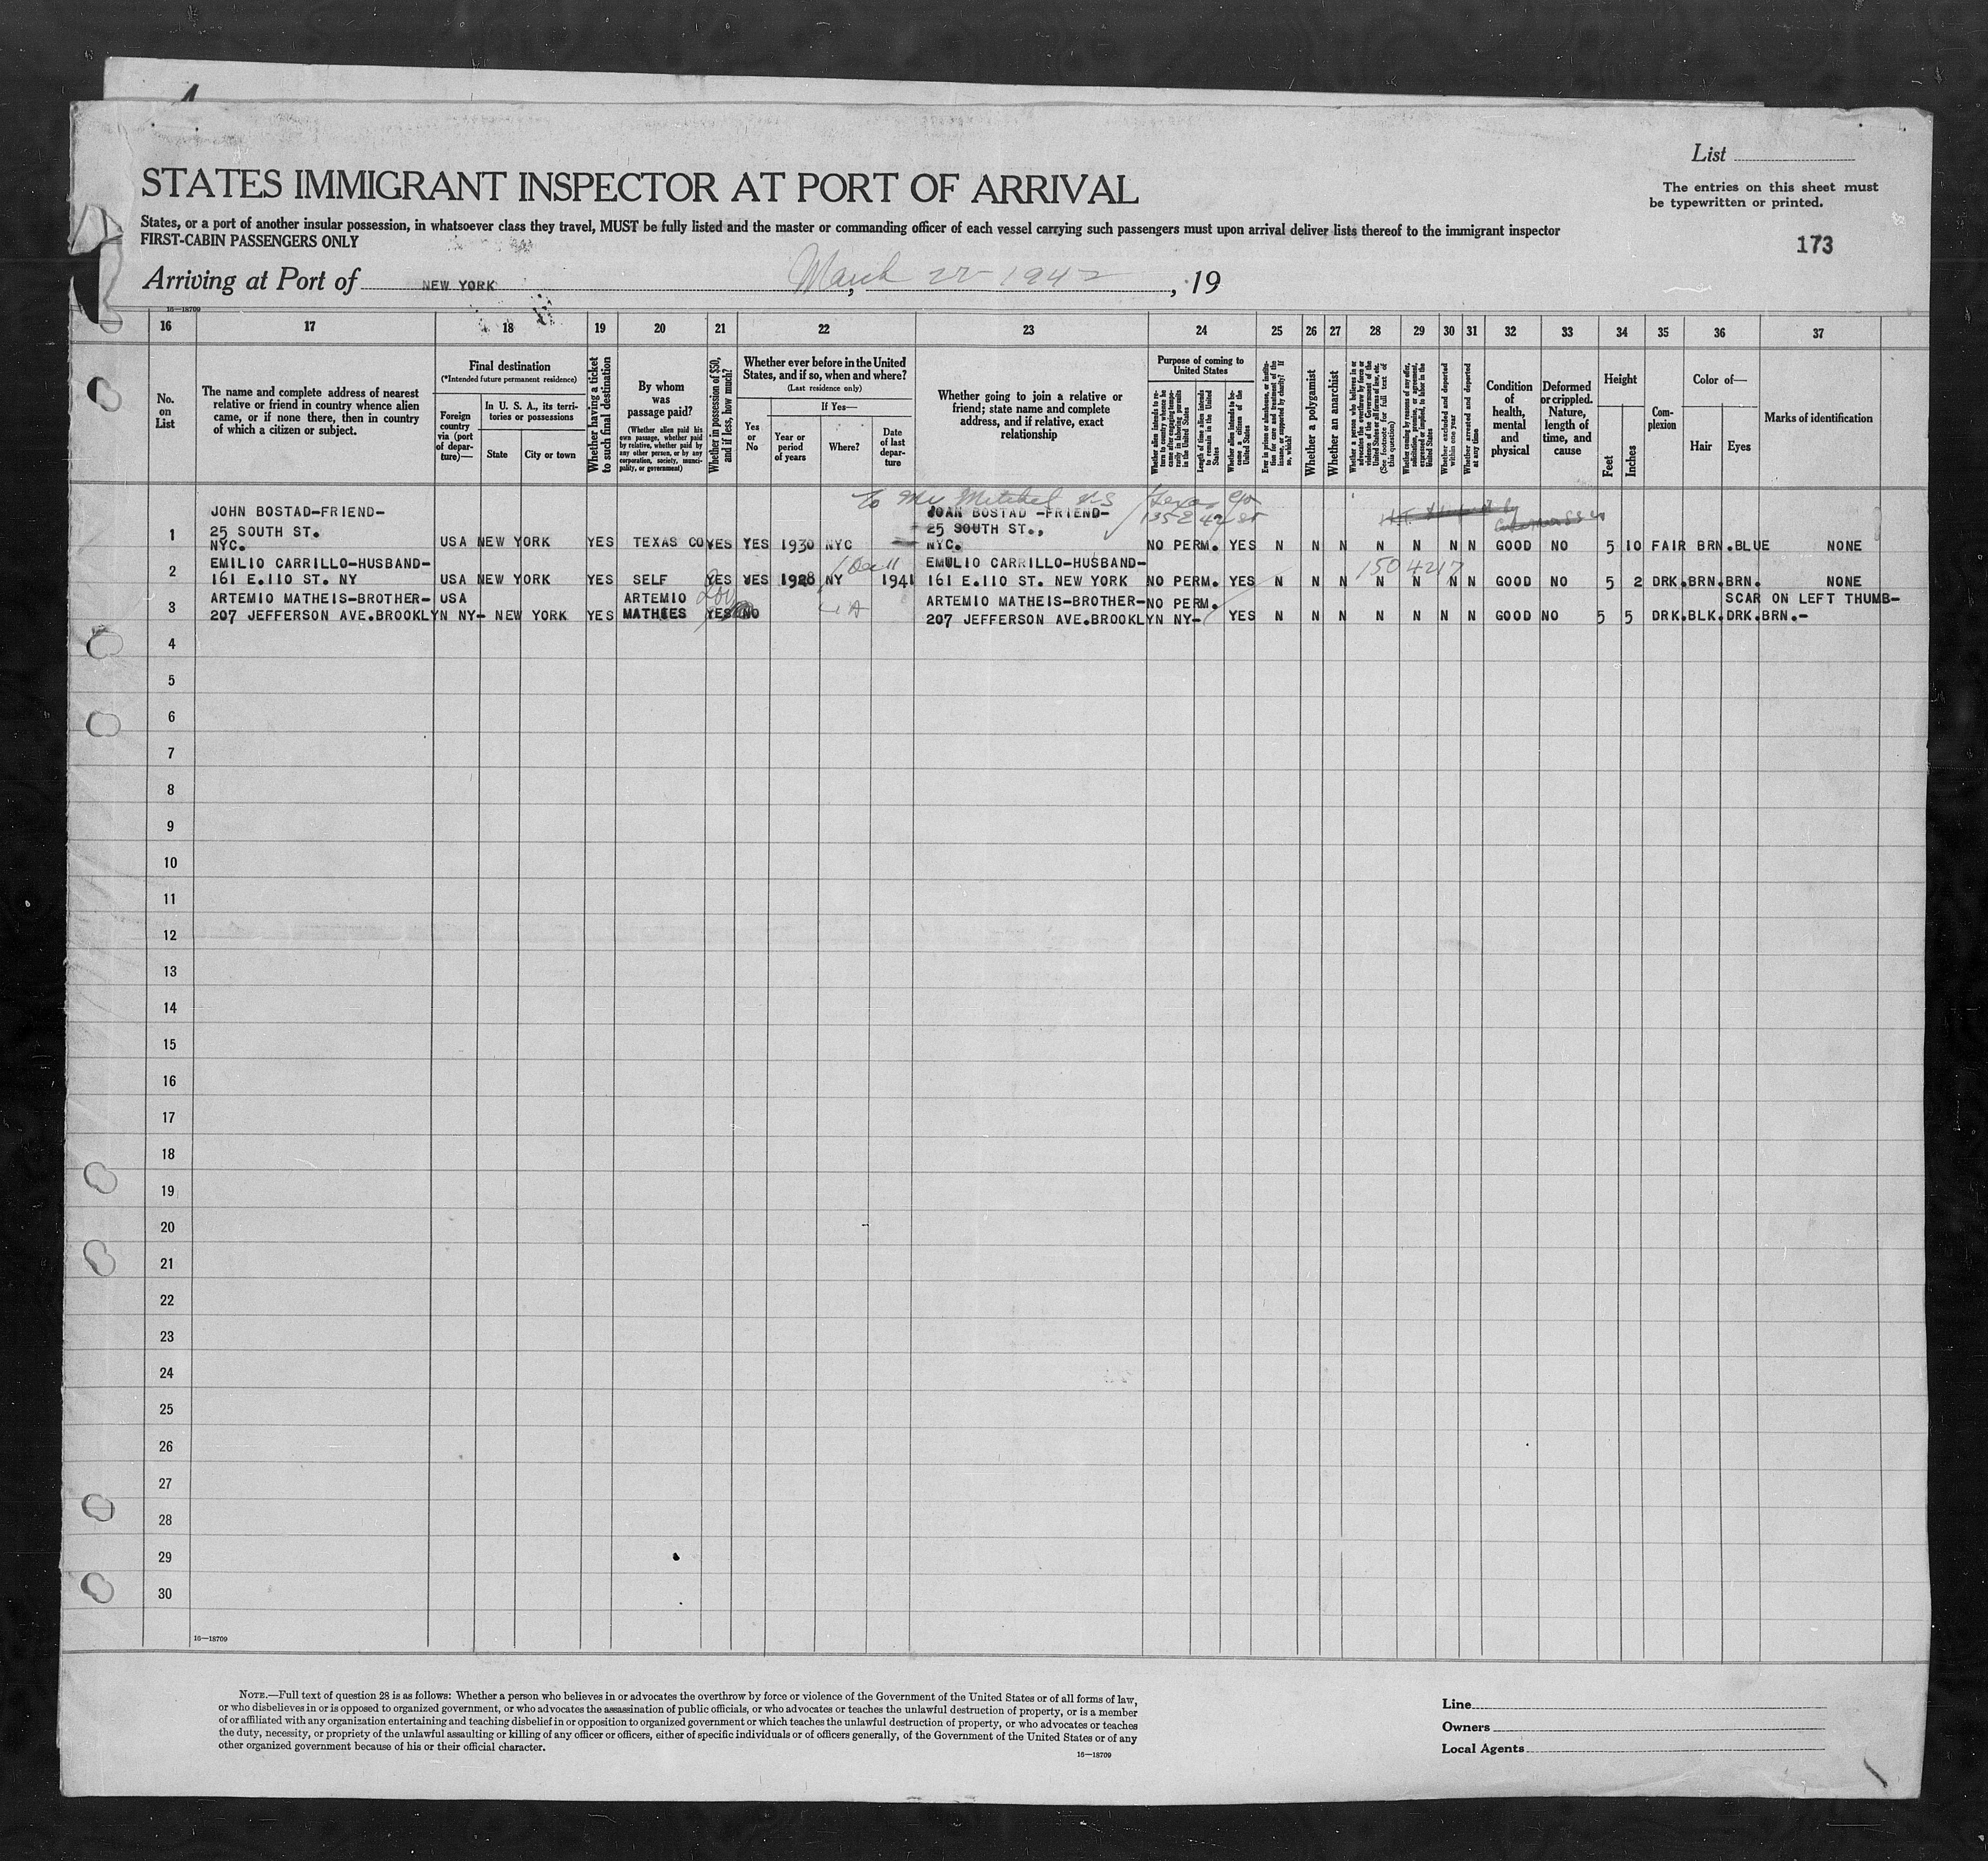 List
STATES IMMIGRANT INSPECTOR AT PORT OF ARRIVAL
The entries on this sheet must
be typewritten or printed.
States, or a port of another insular possession, in whatsoever class they travel, MUST be fully listed and the master or commanding officer of each vessel carrying such passengers must upon arrival deliver lists thereof to the immigrant inspector
FIRST-CABIN PASSENGERS ONLY
173
Arriving at Port of NEW YORK, March 22 1942, 19
16—18709
16 17 18 19 20 21 22 23 24 25 26 27 28 29 30 31 32 33 34 35 36 37
No. on List
The name and complete address of nearest relative or friend in country whence alien came, or if none there, then in country of which a citizen or subject.
Final destination
(*Intended future permanent residence)
Foreign country via (port of departure)—
In U. S. A., its territories or possessions
State
City or town
Whether having a ticket to such final destination
By whom was passage paid?
(Whether alien paid his own passage, whether paid by relative, whether paid by any other person, or by any corporation, society, municipality, or government)
Whether in possession of $50, and if less, how much?
Whether ever before in the United States, and if so, when and where?
(Last residence only)
Yes or No
If Yes—
Year or period of years
Where?
Date of last departure
Whether going to join a relative or friend; state name and complete address, and if relative, exact relationship
Purpose of coming to United States
Whether alien intends to return to country whence he came after engaging temporarily in laboring pursuits in the United States
Length of time alien intends to remain in the United States
Whether alien intends to become a citizen of the United States
Ever in prison or almshouse, or institution for care and treatment of the insane, or supported by charity? If so, which?
Whether a polygamist
Whether an anarchist
Whether a person who believes in or advocates the overthrow by force or violence of the Government of the United States or all forms of law, etc. (See footnote for full text of this question)
Whether coming by reasons of any offer, solicitation, promise, or agreement, expressed or implied, to labor in the United States
Whether excluded and deported within one year
Whether arrested and deported at any time
Condition of health, mental and physical
Deformed or crippled. Nature, length of time, and cause
Height
Feet
Inches
Complexion
Color of—
Hair
Eyes
Marks of identification
To Mr Mitchel Texas Co
135 E 42 St
JOHN BOSTAD-FRIEND- JOAN BOSTAD -FRIEND-
25 SOUTH ST. 25 SOUTH ST.,
1 NYC. USA NEW YORK YES TEXAS CO YES YES 1930 NYC NYC. NO PERM. YES N N N N N N N GOOD NO 5 10 FAIR BRN. BLUE NONE
EMILIO CARRILLO-HUSBAND- EMULIO CARRILLO-HUSBAND-
1504217
2 161 E.110 ST. NY USA NEW YORK YES SELF YES YES 1928 NY 1941 161 E.110 ST. NEW YORK NO PERM. YES N N N N N N N GOOD NO 5 2 DRK. BRN. BRN. NONE
ARTEMIO MATHEIS-BROTHER- USA ARTEMIO ARTEMIO MATHEIS-BROTHER- NO PERM. SCAR ON LEFT THUMB-
3 207 JEFFERSON AVE.BROOKLYN NY- NEW YORK YES MATHEES YES NO 207 JEFFERSON AVE.BROOKLYN NY- YES N N N N N N N GOOD NO 5 5 DRK. BLK. DRK.BRN.-
4
5
6
7
8
9
10
11
12
13
14
15
16
17
18
19
20
21
22
23
24
25
26
27
28
29
30
16—18709
NOTE.—Full text of question 28 is as follows: Whether a person who believes in or advocates the overthrow by force or violence of the Government of the United States or of all forms of law,
or who disbelieves in or is opposed to organized government, or who advocates the assassination of public officials, or who advocates or teaches the unlawful destruction of property, or is a member
of or affiliated with any organization entertaining and teaching disbelief in or opposition to organized government or which teaches the unlawful destruction of property, or who advocates or teaches
the duty, necessity, or propriety of the unlawful assaulting or killing of any officer or officers, either of specific individuals or of officers generally, of the Government of the United States or of any
other organized government because of his or their official character.
16—18709
Line
Owners
Local Agents